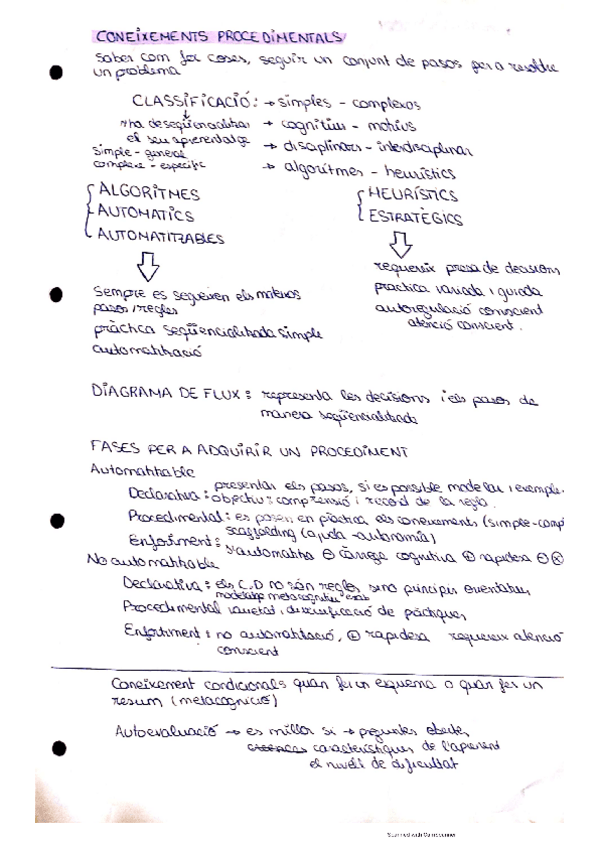 CONEIXEMENTS PROCEDIMENTALS
Saber com fer coses, seguir un conjunt de pasos per a resoldre
un problema
CLASSIFICACIÓ: → simples - complexos
s'ha de seqüencialitzar → cognitius - motrius
el seu aprenentatge → disciplinars - interdisciplinar
simple - general
complexe - especific → algorítmes - heurístics
ALGORÍTMES
AUTOMATICS
AUTOMATITZABLES
HEURÍSTICS
ESTRATÈGICS
Sempre es segueixen els mateixos
pasos i regles
pràctica seqüencialitzada simple
automatització
requereix presa de decisions
practica variada i guiada
autoregulació conscient
atenció conscient.
DIAGRAMA DE FLUX: representa les decisions i els pasos de
manera seqüencialitzada
FASES PER A ADQUIRIR UN PROCEDIMENT
Automatitzable
presentar els pasos, si es possible modelar i exemple.
Declarativa: objectiu: comprensió i record de la regla.
Procedimental: es posen en pràctica els coneixements (simple-comp
scaffolding (ajuda-autonomia)
Enfortiment: s'automatitza ⊖ càrrega cognitiva ⊕ rapidesa ⊖
No automatitzable
Declarativa: els C.D no són regles, sino principis orientatius
modelatge metacognitiu
Procedimental varietat i diversificació de pràctiques
Enfortiment: no automatització, ⊕ rapidesa requereix atenció
conscient
Coneixement condicionals quan fer un esquema o quan fer un
resum (metacognició)
Autoevaluació → es millor si → preguntes obertes
característiques de l'aprenent
el nivell de dificultat
Scanned with CamScanner